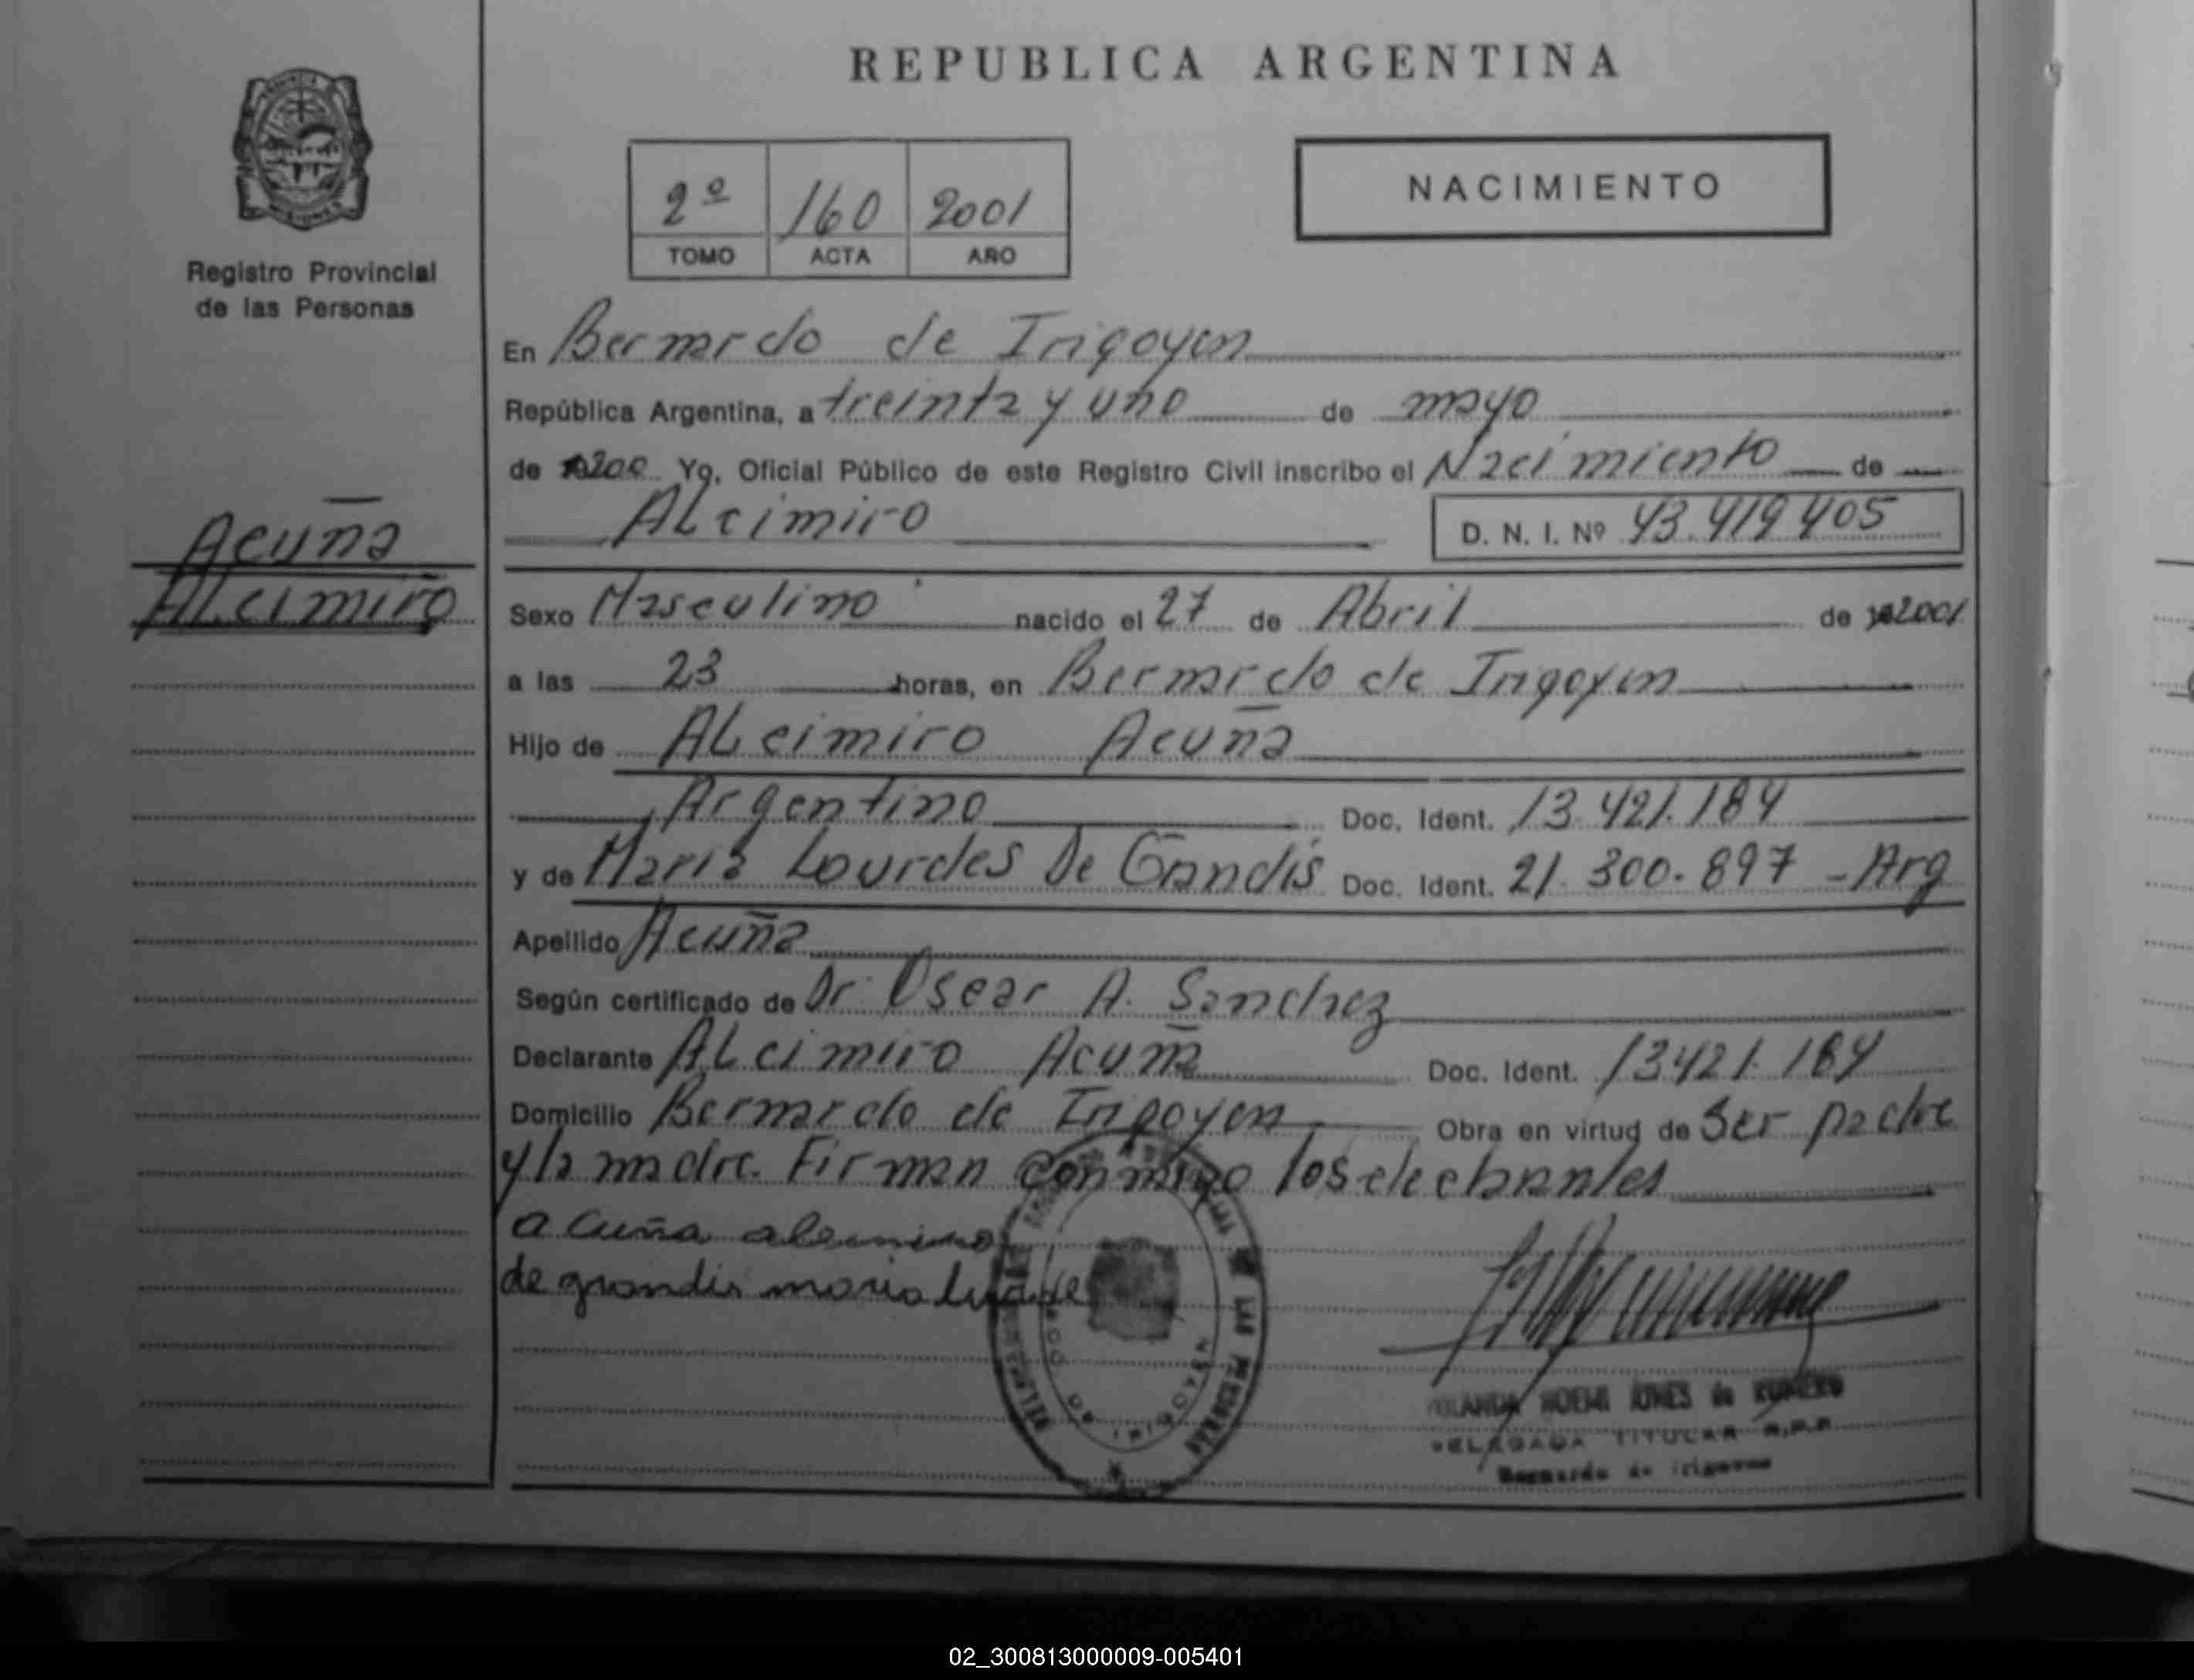 REPUBLICA ARGENTINA
2º 160 2001
TOMO ACTA AÑO
NACIMIENTO
MISIONES
Registro Provincial
de las Personas
Acuña
Alcimiro
En Bernardo de Irigoyen
República Argentina, a treinta y uno de mayo
de Yo, Oficial Público de este Registro Civil inscribo el Nacimiento de
Alcimiro
D. N. I. Nº 43.419.405
Sexo Masculino nacido el 27 de Abril de 2001
a las 23 horas, en Bernardo de Irigoyen
Hijo de Alcimiro Acuña
Argentino Doc. Ident. 13.421.184
y de Maria Lourdes De Grandis Doc. Ident. 21.300.897 - Arg
Apellido Acuña
Según certificado de Dr. Oscar A. Sanchez
Declarante Alcimiro Acuña Doc. Ident. 13421.184
Domicilio Bernardo de Irigoyen Obra en virtud de Ser padre
y la madre. Firman conmigo los
acuña alcimiro
de grandis maria
NOEMI JONES de ROMERO
DELEGADA TITULAR R.P.P.
Bernardo de Irigoyen
02_300813000009-005401